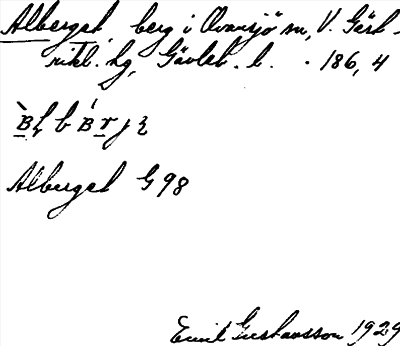 Alberget, berg i Ovansjö sn, V. Gäst-
rikl. hg, Gävleb. l. 186, 4
Alberget G 98
Emil Gustavsson 1929